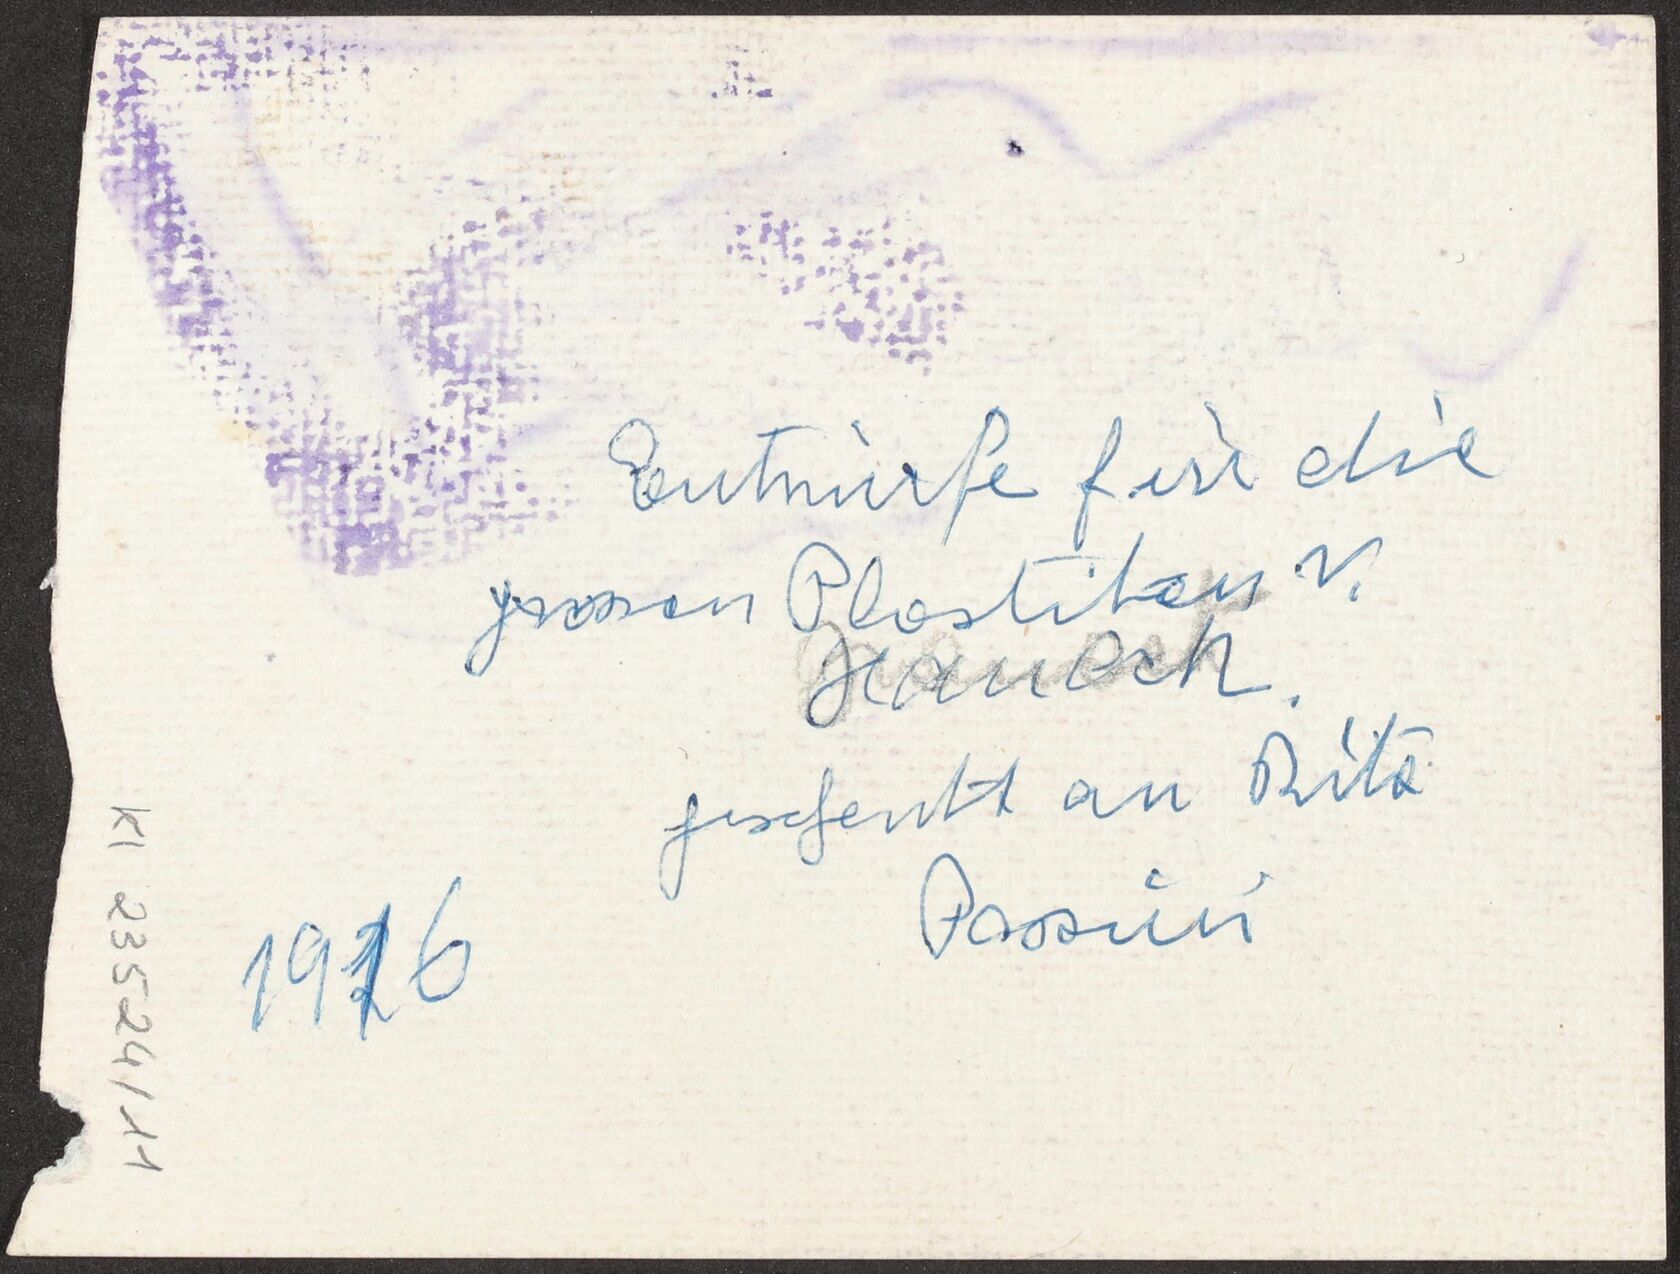 Entwürfe für die
grossen Plastiken v.
Hanack.
geschenkt an Rita
Passini
1926
KI 23524/11